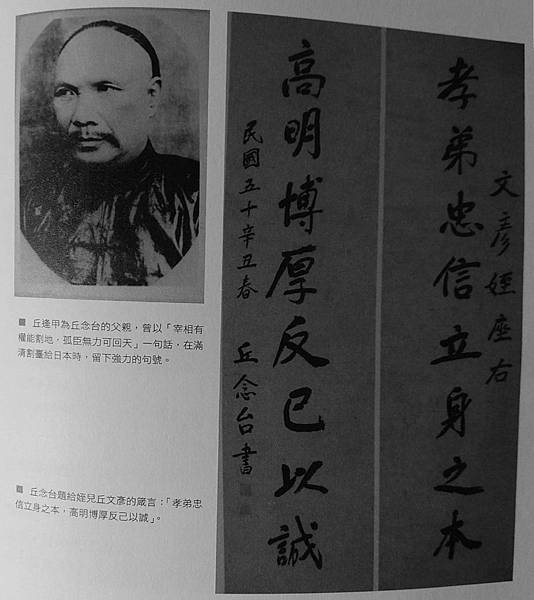 文彥姪座右
孝弟忠信立身之本
高明博厚反己以誠
民國五十辛丑春 丘念台書
■ 丘逢甲為丘念台的父親，曾以「宰相有
權能割地，孤臣無力可回天」一句話，在滿
清割臺給日本時，留下強力的句號。
■ 丘念台題給姪兒丘文彥的箴言：「孝弟忠
信立身之本，高明博厚反己以誠」。